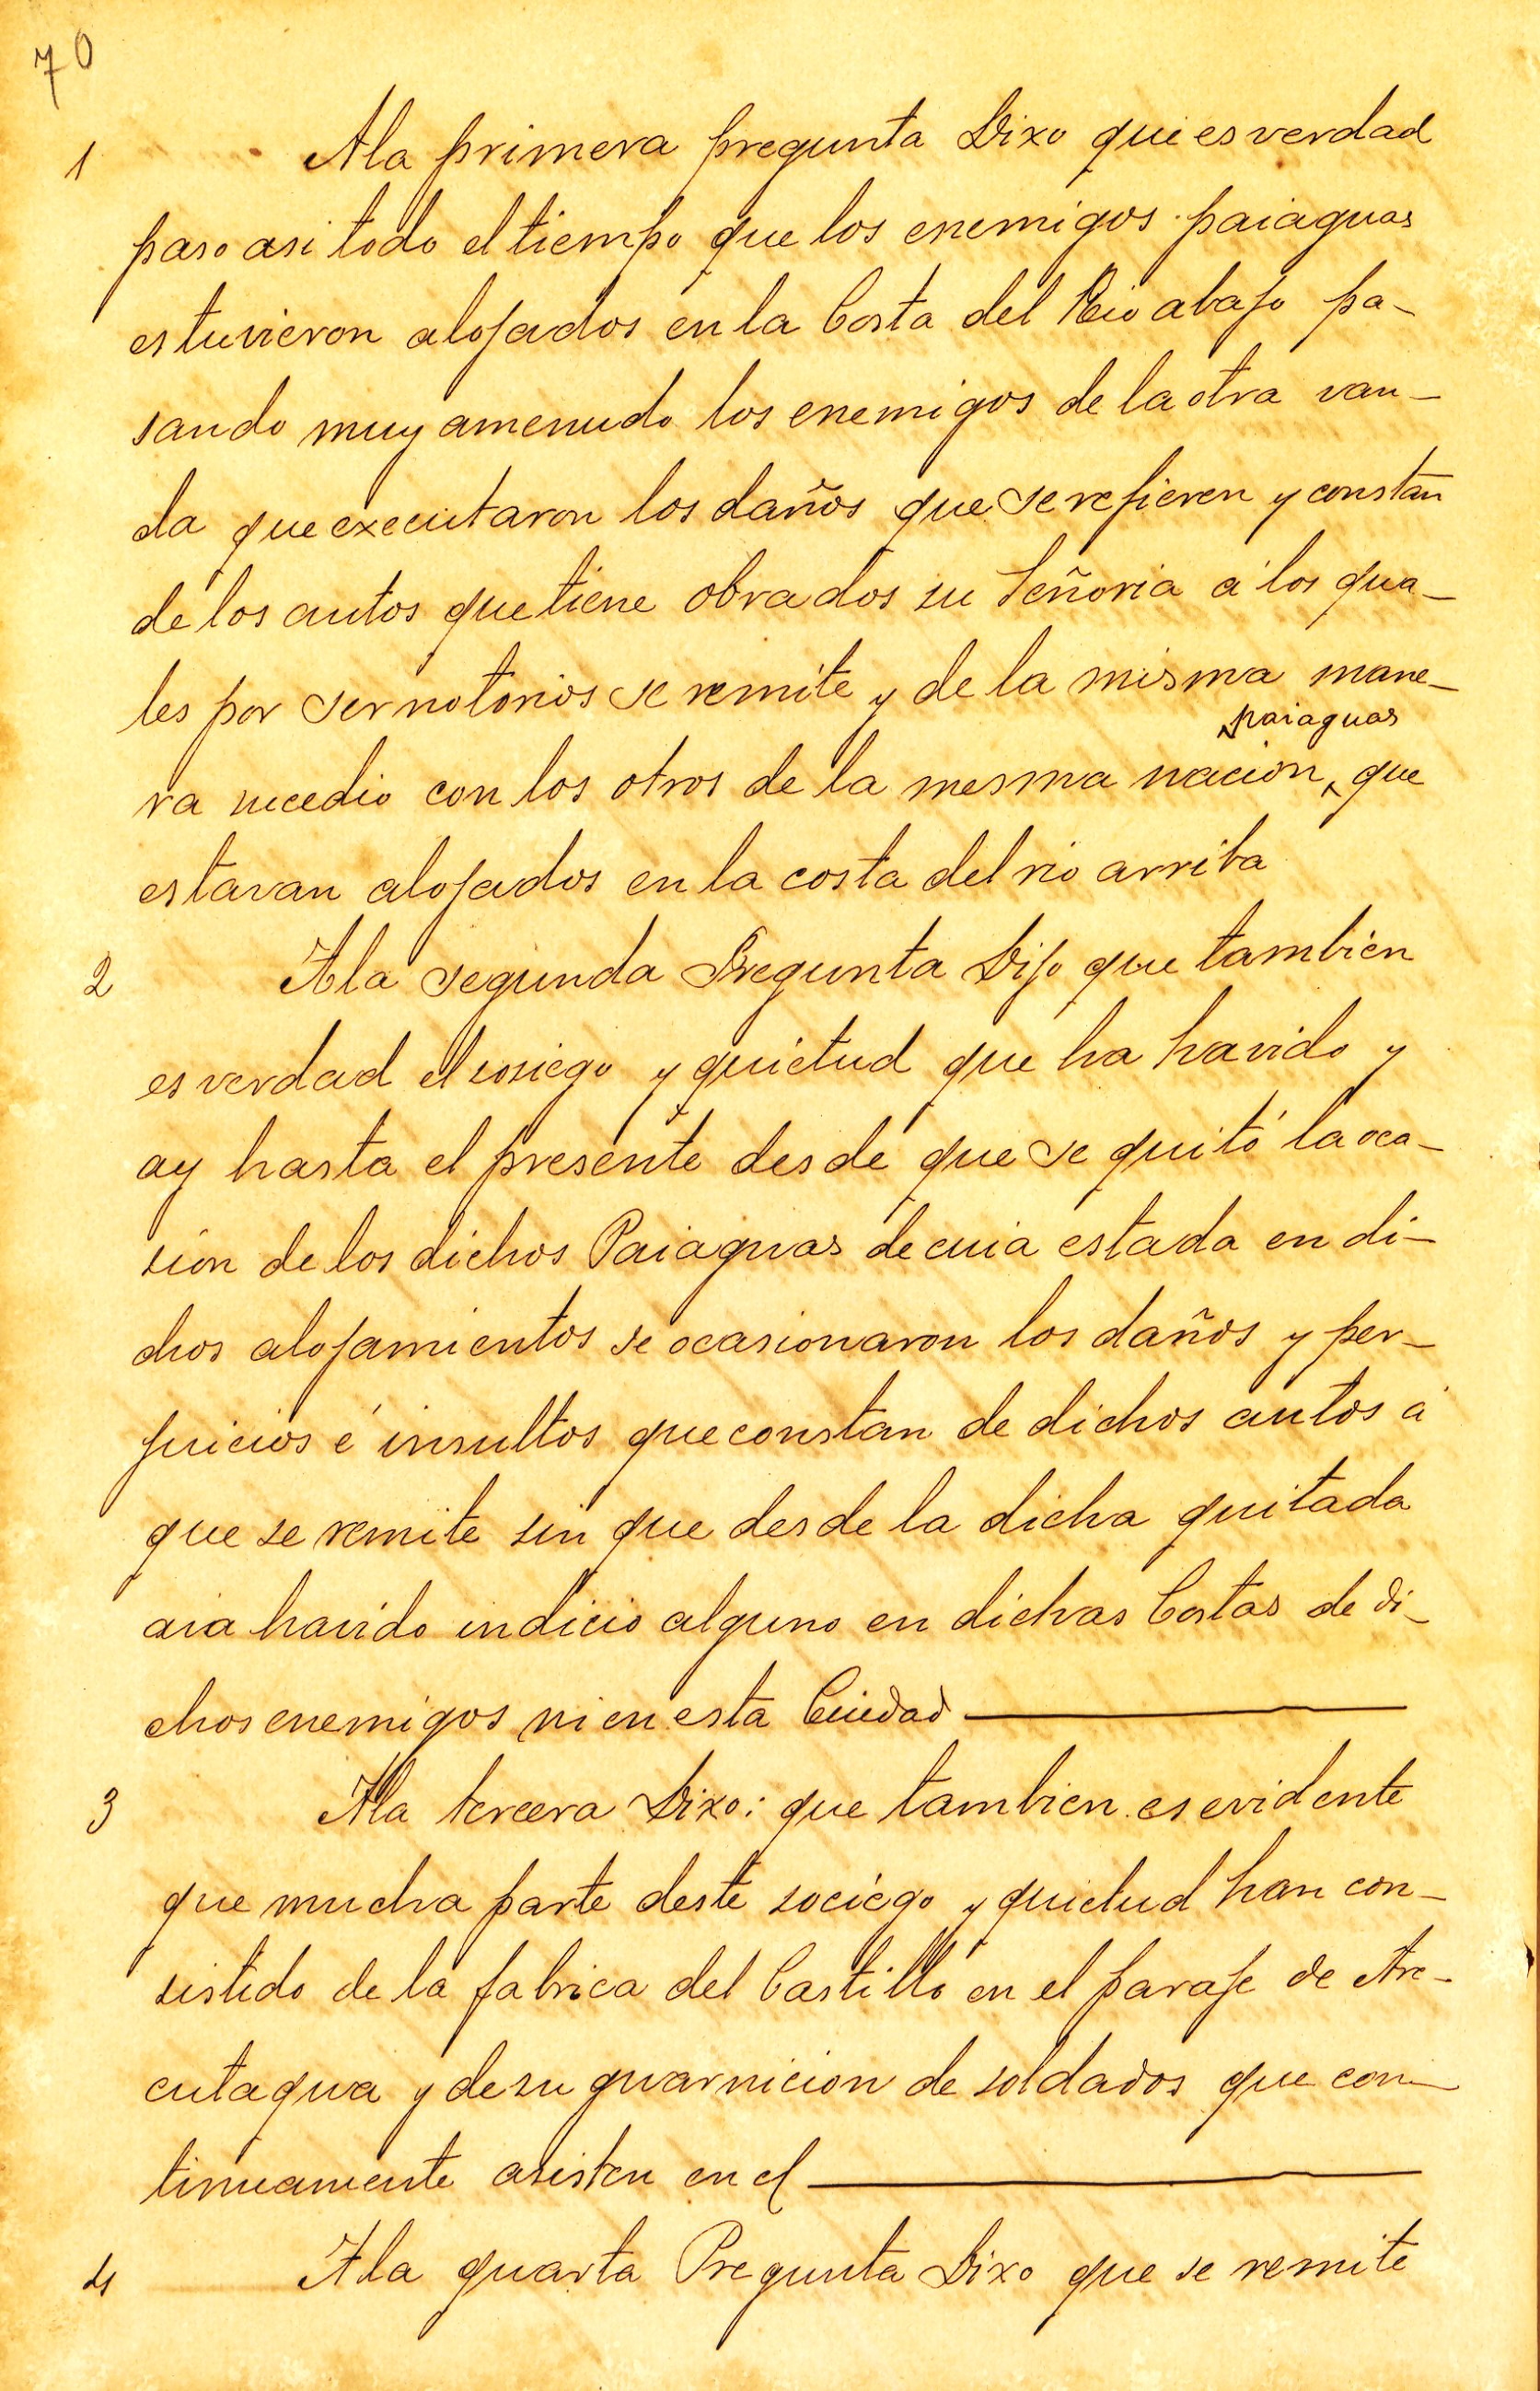 70
1 Ala primera pregunta Dixo que es verdad
paso asi todo el tiempo que los enemigos paiaguas
estuvieron alojados en la Costa del Rio abajo pa-
sando muy amenudo los enemigos de la otra van-
da que executaron los daños que se refieren y constan
de los autos que tiene obrados su Señoria á los qua-
les por ser notorios se remite y de la misma mane-
paiaguas
ra sucedio con los otros de la mesma nacion, que
estavan alojados en la costa del rio arriba
2 Ala segunda Pregunta Dijo que tambien
es verdad el sosiego y quietud que ha havido y
ay hasta el presente desde que se quitó la oca-
sion de los dichos Paiaguas de cuia estada en di-
chos alojamientos se ocasionaron los daños y per-
juicios é insultos que constan de dichos autos á
que se remite sin que desde la dicha quitada
aia havido indicio alguno en dichas Costas de di-
chos enemigos ni en esta Ciudad
3 Ala tercera Dixo: que tambien es evidente
que mucha parte deste sociego y quietud han con-
sistido de la fabrica del Castillo en el paraje de Are-
cutagua y de su guarnicion de soldados que con-
tinuamente asisten en el
4 Ala quarta Pregunta Dixo que se remite